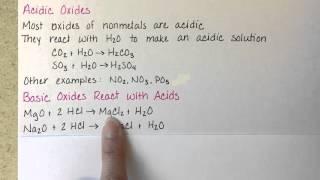 Acidic Oxides
Most oxides of nonmetals are acidic
They react with H₂O to make an acidic solution
CO₂ + H₂O → H₂CO₃
SO₃ + H₂O → H₂SO₄
Other examples: NO₂, NO₃, PO₃
Basic Oxides React with Acids
MgO + 2 HCl → MgCl₂ + H₂O
Na₂O + 2 HCl → Cl + H₂O